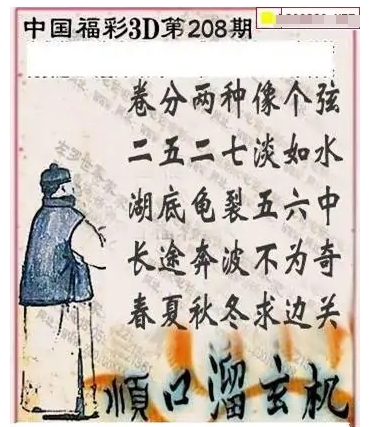 中国福彩3D第208期
卷分两种像个弦
二五二七淡如水
湖底龟裂五六中
长途奔波不为奇
春夏秋冬求边关
顺口溜玄机